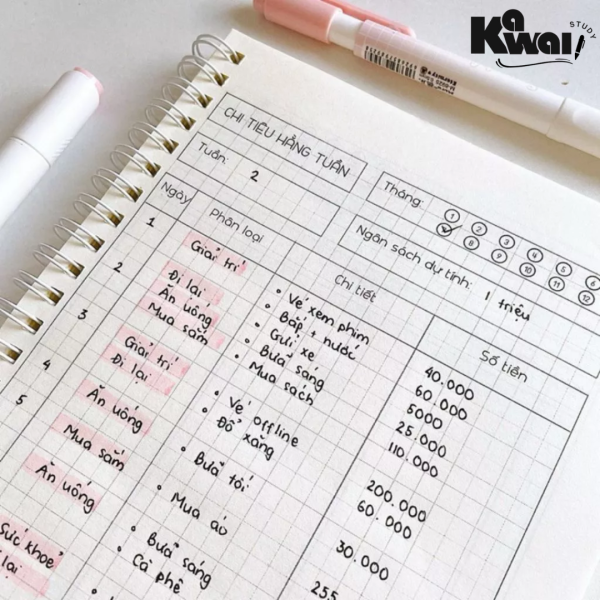 Kawaii
STUDY
CHI TIÊU HẰNG TUẦN
Tuần: 2
Tháng: 1 2 3 4 5 6
8 9 10 11 12
Ngân sách dự tính: 1 triệu
Ngày Phân loại Chi tiết Số tiền
1 Giải trí • Vé xem phim 40.000
• Bắp + nước 60.000
2 Đi lại • Gửi xe 5000
Ăn uống • Bữa sáng 25.000
Mua sắm • Mua sách 110.000
3 Giải trí • Vé offline 200.000
Đi lại • Đổ xăng 60.000
4 Ăn uống • Bữa tối 30.000
5 Mua sắm • Mua áo 255
Ăn uống • Bữa sáng
• Cà phê
Sức khoẻ
lại